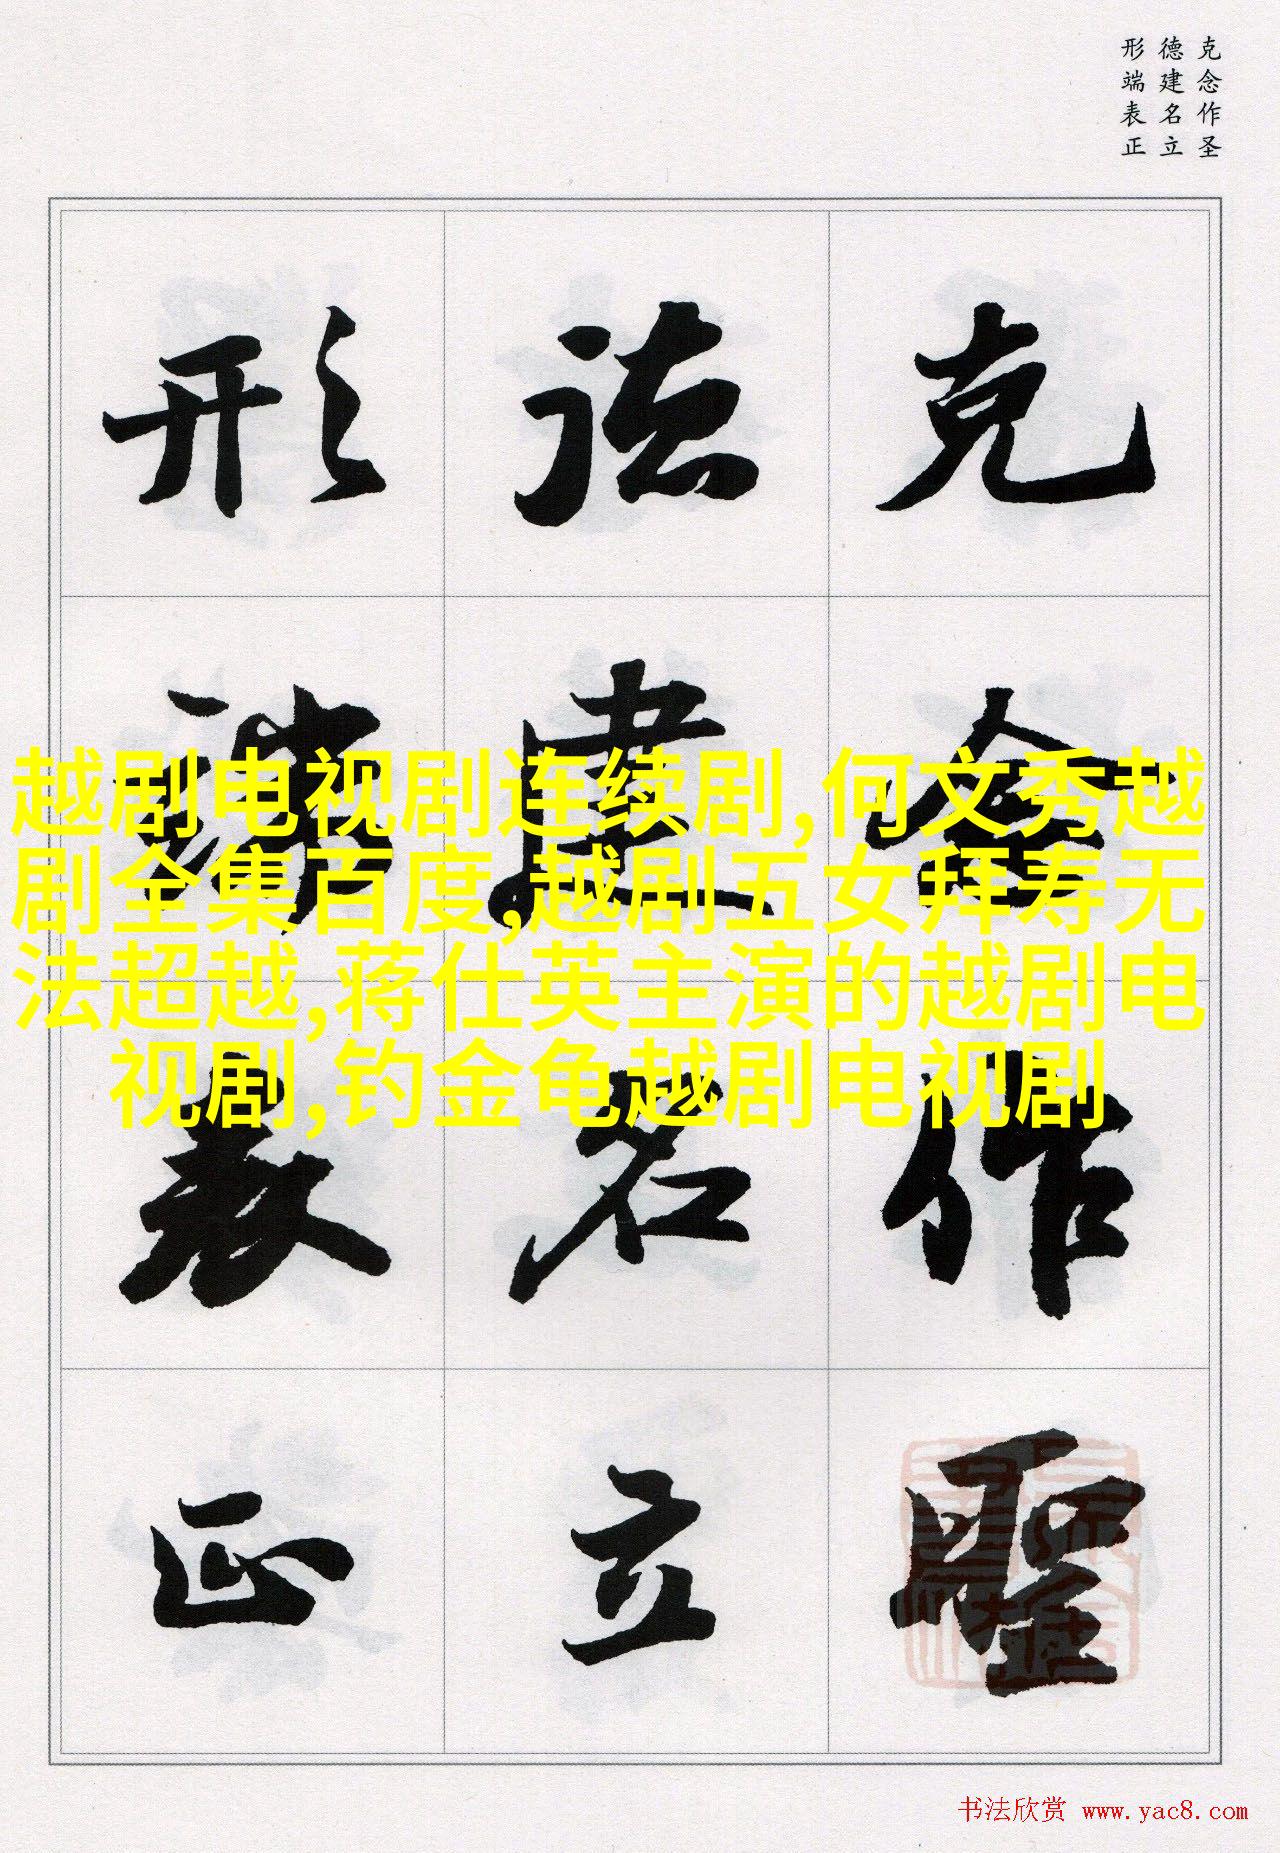 克念作圣
德建名立
形端表正
克念作聖
德建名立
形端表正
越剧电视剧连续剧,何文秀越
剧全集百度,越剧五女拜寿无
法超越,蒋仕英主演的越剧电
视剧,钓金龟越剧电视剧
书法欣赏 www.yac8.com